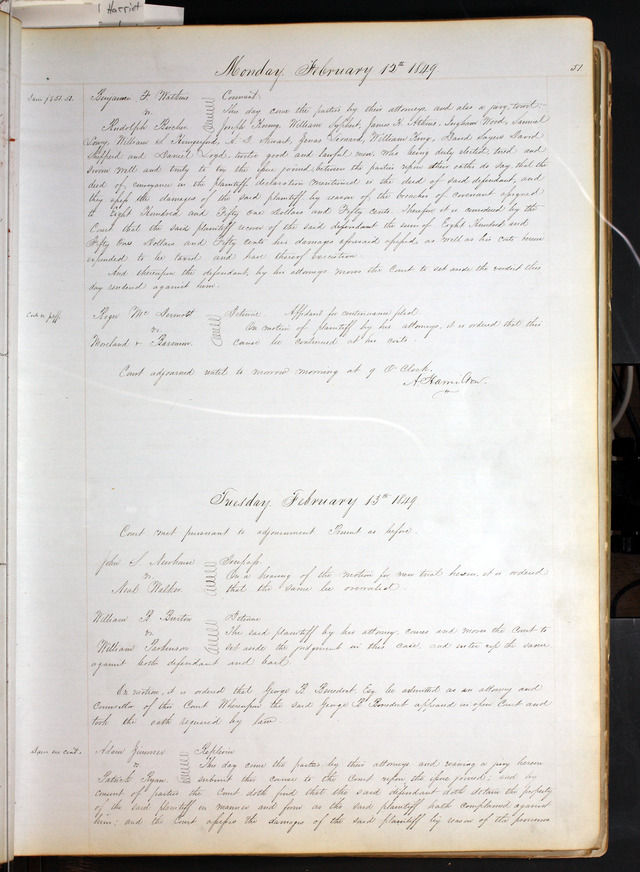 Harriet
Monday, February 12th 1849.
51
Benjamin F. Watkins Covenant.
vs This day came the parties by their attorneys and also a jury, towit:
Rudolph Joseph Koenig, William James H. Wood, Samuel
William S. Stuart, James William King, David Sayers David
Sheppard and Daniel Loyd, twelve good and lawful men, who being duly elected, tried and
sworn well and truly to try the issue joined between the parties upon their oaths do say that the
deed of conveyance in the plaintiffs declaration mentioned is the deed of said defendant, and
they assess the damages of the said plaintiff by reason of the breaches of covenant assigned
to Eight Hundred and Fifty One Dollars and Fifty cents. Therefore it is considered by the
Court that the said plaintiff recover of the said defendant the sum of Eight Hundred and
Fifty One Dollars and Fifty cents his damages aforesaid assessed, as well as his costs herein
expended to be taxed and have thereof execution.
And thereupon the defendant, by his attorneys moves the Court to set aside the verdict this
day rendered against him.
Roger Mc Dermott Detinue Affidavit for continuance filed
vs On motion of plaintiff by his attorneys, it is ordered that this
Moreland & cause be continued at his costs.
Court adjourned until to morrow morning at 9 O'Clock.
A Hamilton.
Tuesday, February 13th 1849
Court met pursuant to adjournment. Present as before.
John S. Trespass.
vs. On a hearing of the motion for new trial herein, it is ordered
Neal Walker. that the same be overruled.
William B. Burton Detinue
vs The said plaintiff by his attorney, comes and moves the Court to
William Parkinson set aside the judgment in this case, and enter up the same
against both defendant and bail.
On motion, it is ordered that George B. Benedict, Esq. be admitted as an attorney and
Counsellor of this Court Whereupon the said George B. Benedict appeared in open Court and
took the oath required by law.
Adam Replevin
vs This day came the parties by their attorneys and waiving a jury herein
Patrick Ryan. submit this cause to the Court upon the issue joined; and by
consent of parties the Court doth find that the said defendant doth detain the property
of the said plaintiff in manner and form as the said plaintiff hath complained against
him; and the Court assess the damages of the said plaintiff by reason of the premises